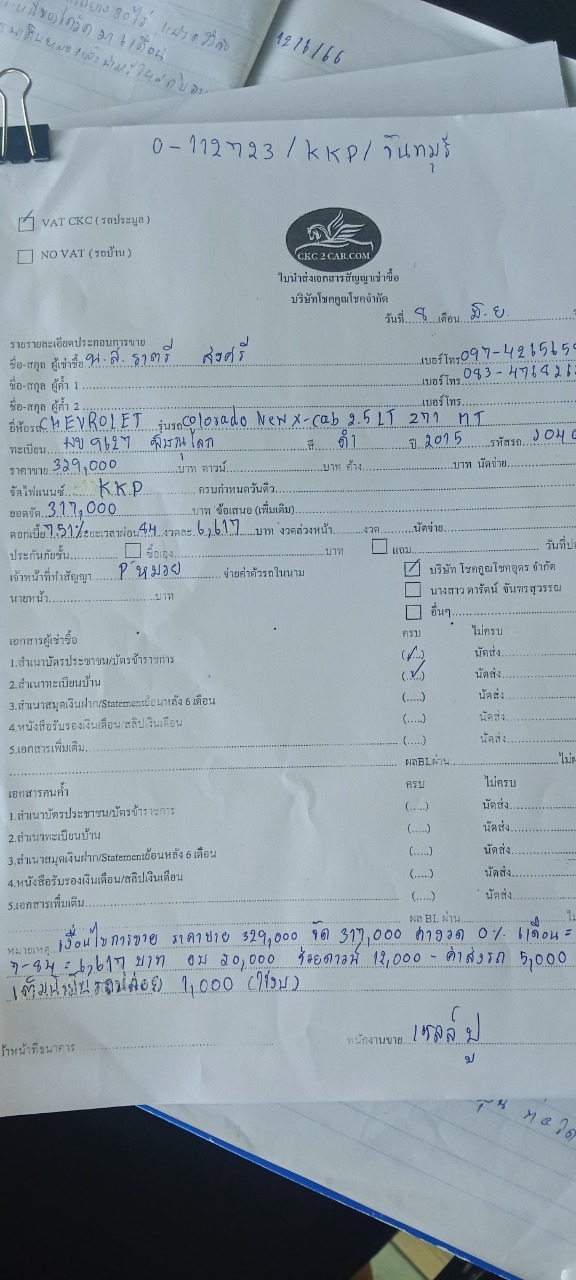 12/6/66
0-112723 / KKP / จันทบุรี
VAT CKC ( รถประมูล )
NO VAT ( รถบ้าน )
CKC 2 CAR.COM
ใบนำส่งเอกสารสัญญาเช่าซื้อ
บริษัทโชคคูณโชคจำกัด
วันที่ 8 เดือน มิ.ย.
รายรายละเอียดประกอบการขาย
ชื่อ-สกุล ผู้เช่าซื้อ น.ส. ราตรี สงศรี เบอร์โทร 097-4265659
ชื่อ-สกุล ผู้ค้ำ 1 เบอร์โทร
ชื่อ-สกุล ผู้ค้ำ 2 เบอร์โทร
ยี่ห้อรถ CHEVROLET รุ่นรถ Colorado New X-cab 2.5 LT Z71 MT
ทะเบียน ผข 9627 พิษณุโลก สี ดำ ปี 2015 รหัสรถ
ราคาขาย 329,000 บาท ดาวน์ บาท ค้าง บาท นัดจ่าย
จัดไฟแนนซ์ KKP ครบกำหนดวันดิว
ยอดจัด 317,000 บาท ข้อเสนอ (เพิ่มเติม)
ดอกเบี้ย 7.51% ระยะเวลาผ่อน 84 งวดละ 6,617 บาท งวดล่วงหน้า งวด นัดจ่าย
ประกันภัยชั้น ซื้อเอง บาท แถม
เจ้าหน้าที่ทำสัญญา P'หมวย จ่ายค่าตัวรถในนาม บริษัท โชคคูณโชคอุดร จำกัด
นายหน้า บาท นางสาว ดารัตน์ จันทรสุวรรณ
อื่นๆ
เอกสารผู้เช่าซื้อ ครบ ไม่ครบ
1.สำเนาบัตรประชาชน/บัตรข้าราชการ (✓) นัดส่ง
2.สำเนาทะเบียนบ้าน (✓) นัดส่ง
3.สำเนาสมุดเงินฝาก/Statementย้อนหลัง 6 เดือน (.....) นัดส่ง
4.หนังสือรับรองเงินเดือน/สลิปเงินเดือน (.....) นัดส่ง
5.เอกสารเพิ่มเติม (.....) นัดส่ง
ผลBLผ่าน
เอกสารคนค้ำ ครบ ไม่ครบ
1.สำเนาบัตรประชาชน/บัตรข้าราชการ (.....) นัดส่ง
2.สำเนาทะเบียนบ้าน (.....) นัดส่ง
3.สำเนาสมุดเงินฝาก/Statementย้อนหลัง 6 เดือน (.....) นัดส่ง
4.หนังสือรับรองเงินเดือน/สลิปเงินเดือน (.....) นัดส่ง
5.เอกสารเพิ่มเติม (.....) นัดส่ง
ผล BL ผ่าน
หมายเหตุ เงื่อนไขการขาย ราคาขาย 329,000 จัด 317,000 ค่างวด 0% 1 เดือน =
7-84 = 6,617 บาท งบ 20,000 ช่วยดาวน์ 12,000 - ค่าส่งรถ 5,000
1,000 (ใช้งบ)
เจ้าหน้าที่ธนาคาร พนักงานขาย เซลล์ ปู